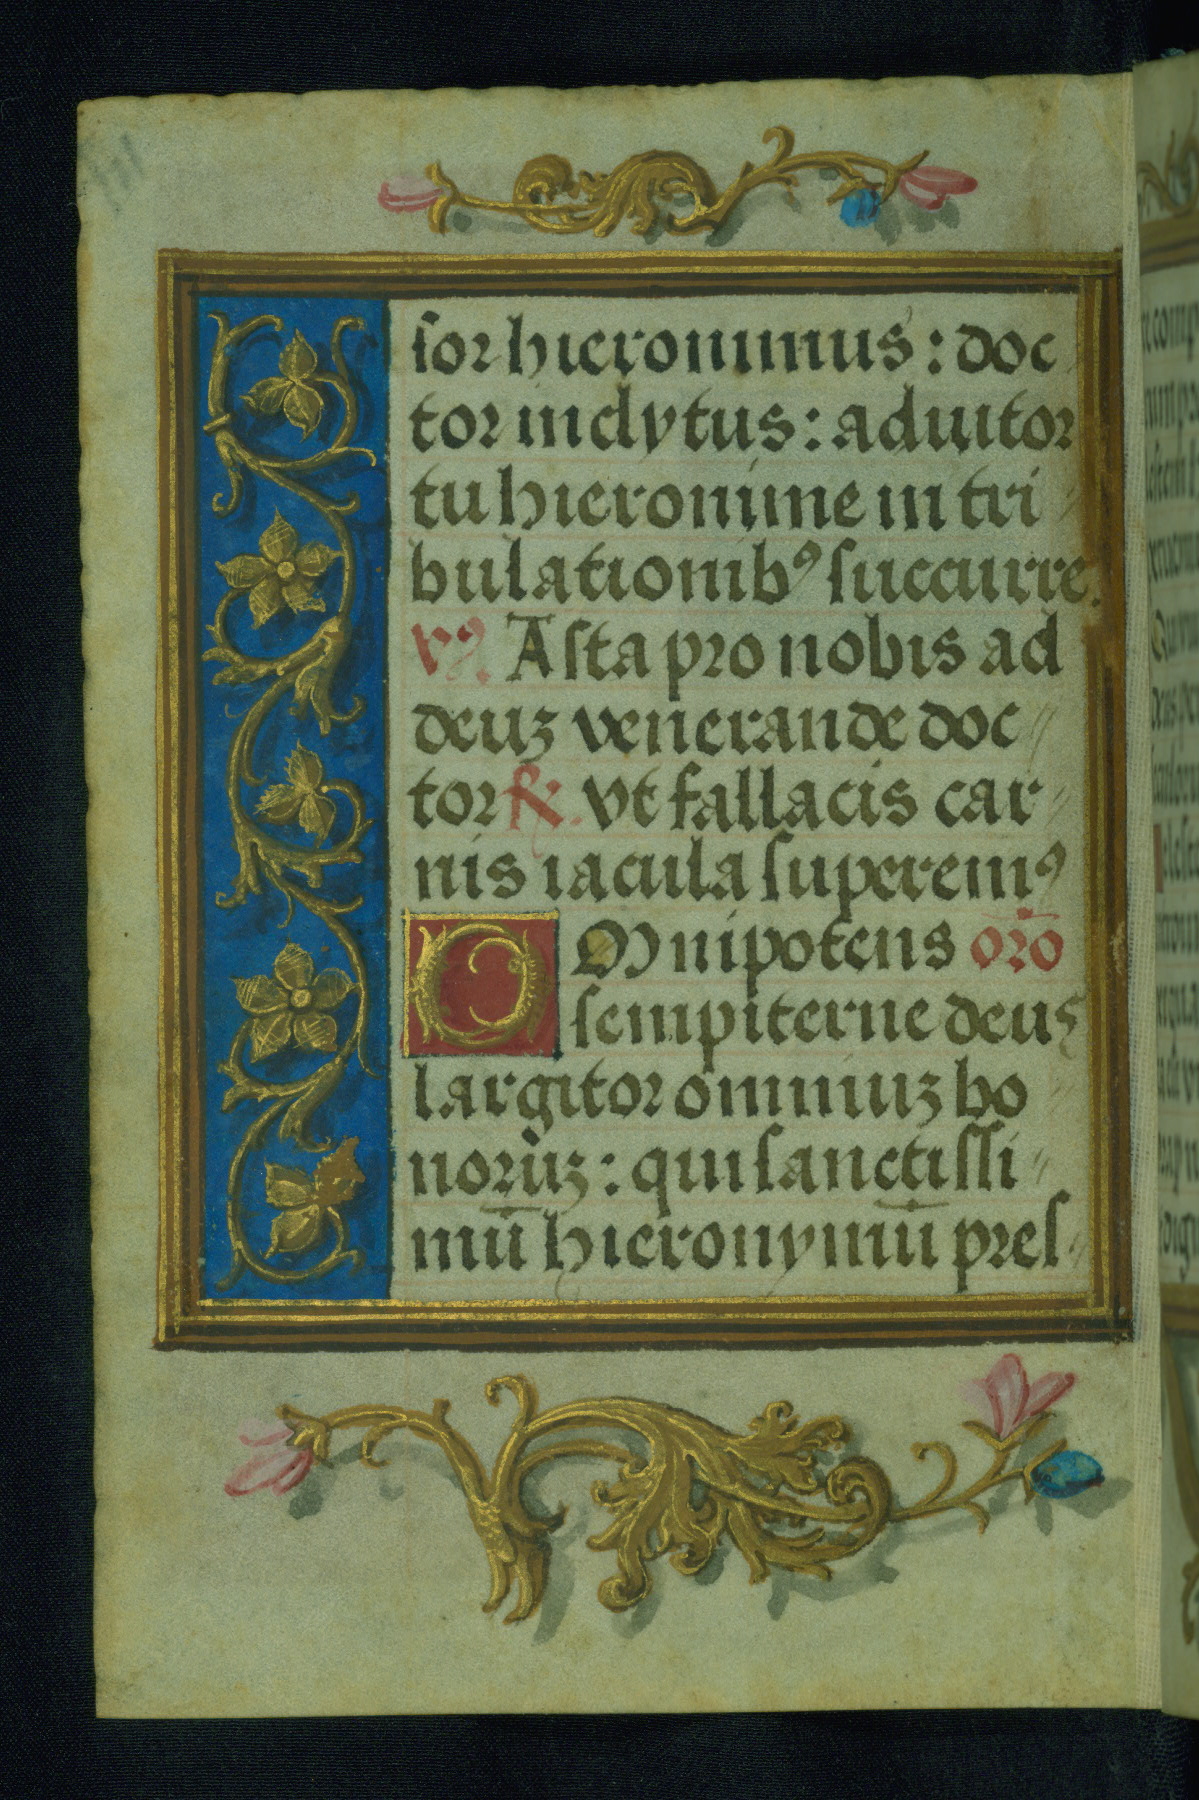 sor hieronimus : doc
tor inclytus : adiutor
tu hieronime in tri
bulationibꝰ succurre.
vꝰ. Asta pro nobis ad
deuꝫ venerande doc
tor ℟. vt fallacis car
nis iacula superemꝰ
OMnipotens oro̅
sempiterne deus
largitor omniuꝫ bo
noruꝫ : qui sanctissi
mū hieronymū pres